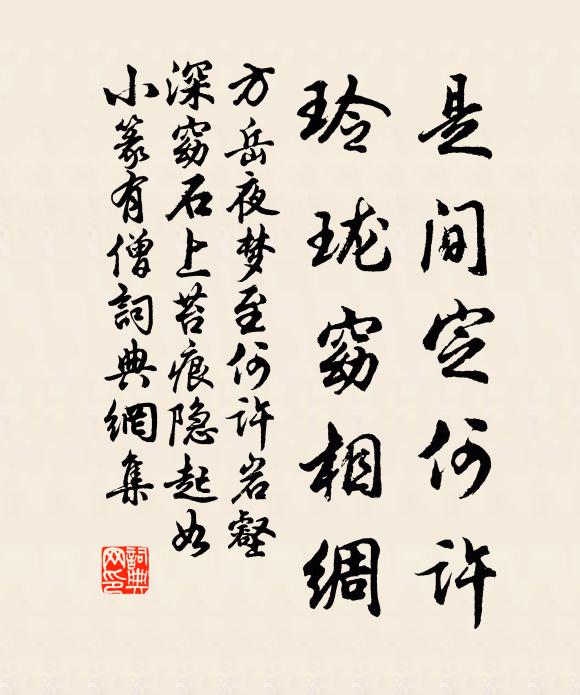 是间定何许
玲珑窈相绸
方岳夜梦至何许岩壑
深窈石上苔痕隐起如
小篆有僧詞典網集
詞典网印